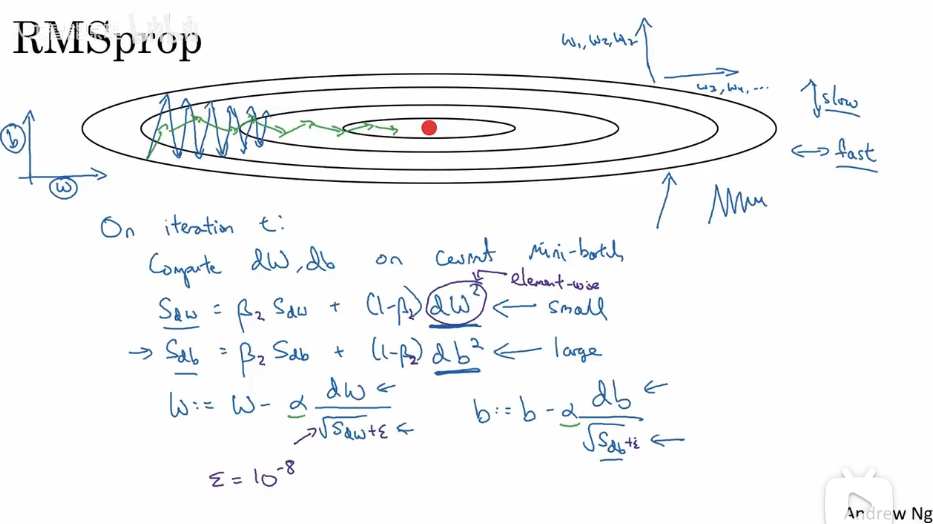 RMSprop
w₁, w₂, w₂
w₃, w₄, ...
↕ slow
↔ fast
b
w
On iteration t:
Compute dW, db on current mini-batch
element-wise
S_dw = β₂ S_dw + (1-β₂) dW² ← small
→ S_db = β₂ S_db + (1-β₂) db² ← large
W := W - α dW / √S_dw + ε ←
b := b - α db / √S_db + ε ←
ε = 10⁻⁸
Andrew Ng